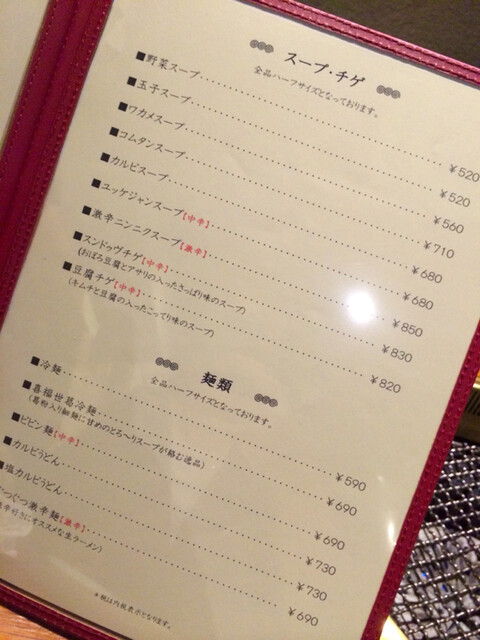 スープ・チゲ
全品ハーフサイズとなっております。
■野菜スープ ¥520
■玉子スープ ¥520
■ワカメスープ ¥560
■コムタンスープ ¥710
■カルビスープ ¥680
■ユッケジャンスープ【中辛】 ¥680
■激辛ニンニクスープ【激辛】 ¥850
■スンドゥヴチゲ【中辛】 ¥830
(おぼろ豆腐とアサリの入ったさっぱり味のスープ)
■豆腐チゲ【中辛】 ¥820
(キムチと豆腐の入ったこってり味のスープ)
麺類
全品ハーフサイズとなっております。
■冷麺 ¥590
■喜福世葛冷麺 ¥690
(葛粉入り細麺に甘めのとろ〜りスープが絡む逸品)
■ビビン麺【中辛】 ¥690
■カルビうどん ¥730
■塩カルビうどん ¥730
つぐつ激辛麺【激辛】 ¥690
辛好きにオススメな生ラーメン)
*税は内税表示となります。